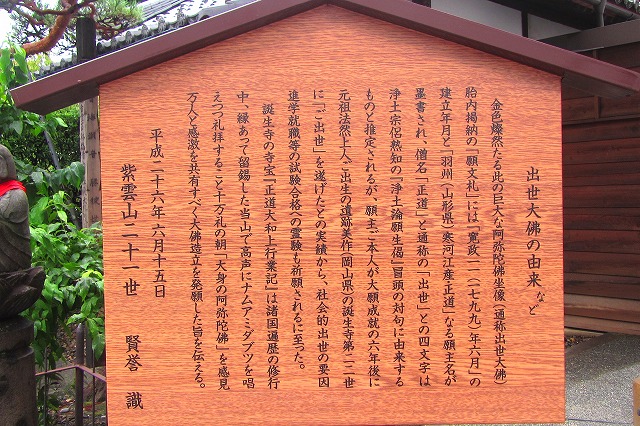 出世大佛の由来 など
金色燦然たる此の巨大な阿弥陀佛坐像(通称出世大佛)
胎内掲納の「願文札」には「寛政一一(一七九九)年六月」の
建立年月と「羽州(山形県)寒河江産正道」なる願主名が
墨書され、僧名「正道」と通称の「出世」との四文字は
浄土宗侶熟知の『浄土論願生偈』冒頭の対句に由来する
ものと推定されるが、願主ご本人が大願成就の六年後に
元祖法然上人ご出生の遺跡美作(岡山県)の誕生寺第二二世
に「ご出世」を遂げたとの実績から、社会的出世の要因
進学就職等の試験合格への霊験も祈願されるに至った。
誕生寺の寺宝『正道大和上行業記』は諸国遍歴の修行
中、縁あって留錫した当山で高声にナムアミダブツを唱
えつつ礼拝すること十万礼の朝「大身の阿弥陀佛」を感見
万人と感激を共有すべく大佛造立を発願した旨を伝える。
平成二十六年六月十五日
紫雲山二十一世 賢誉 識